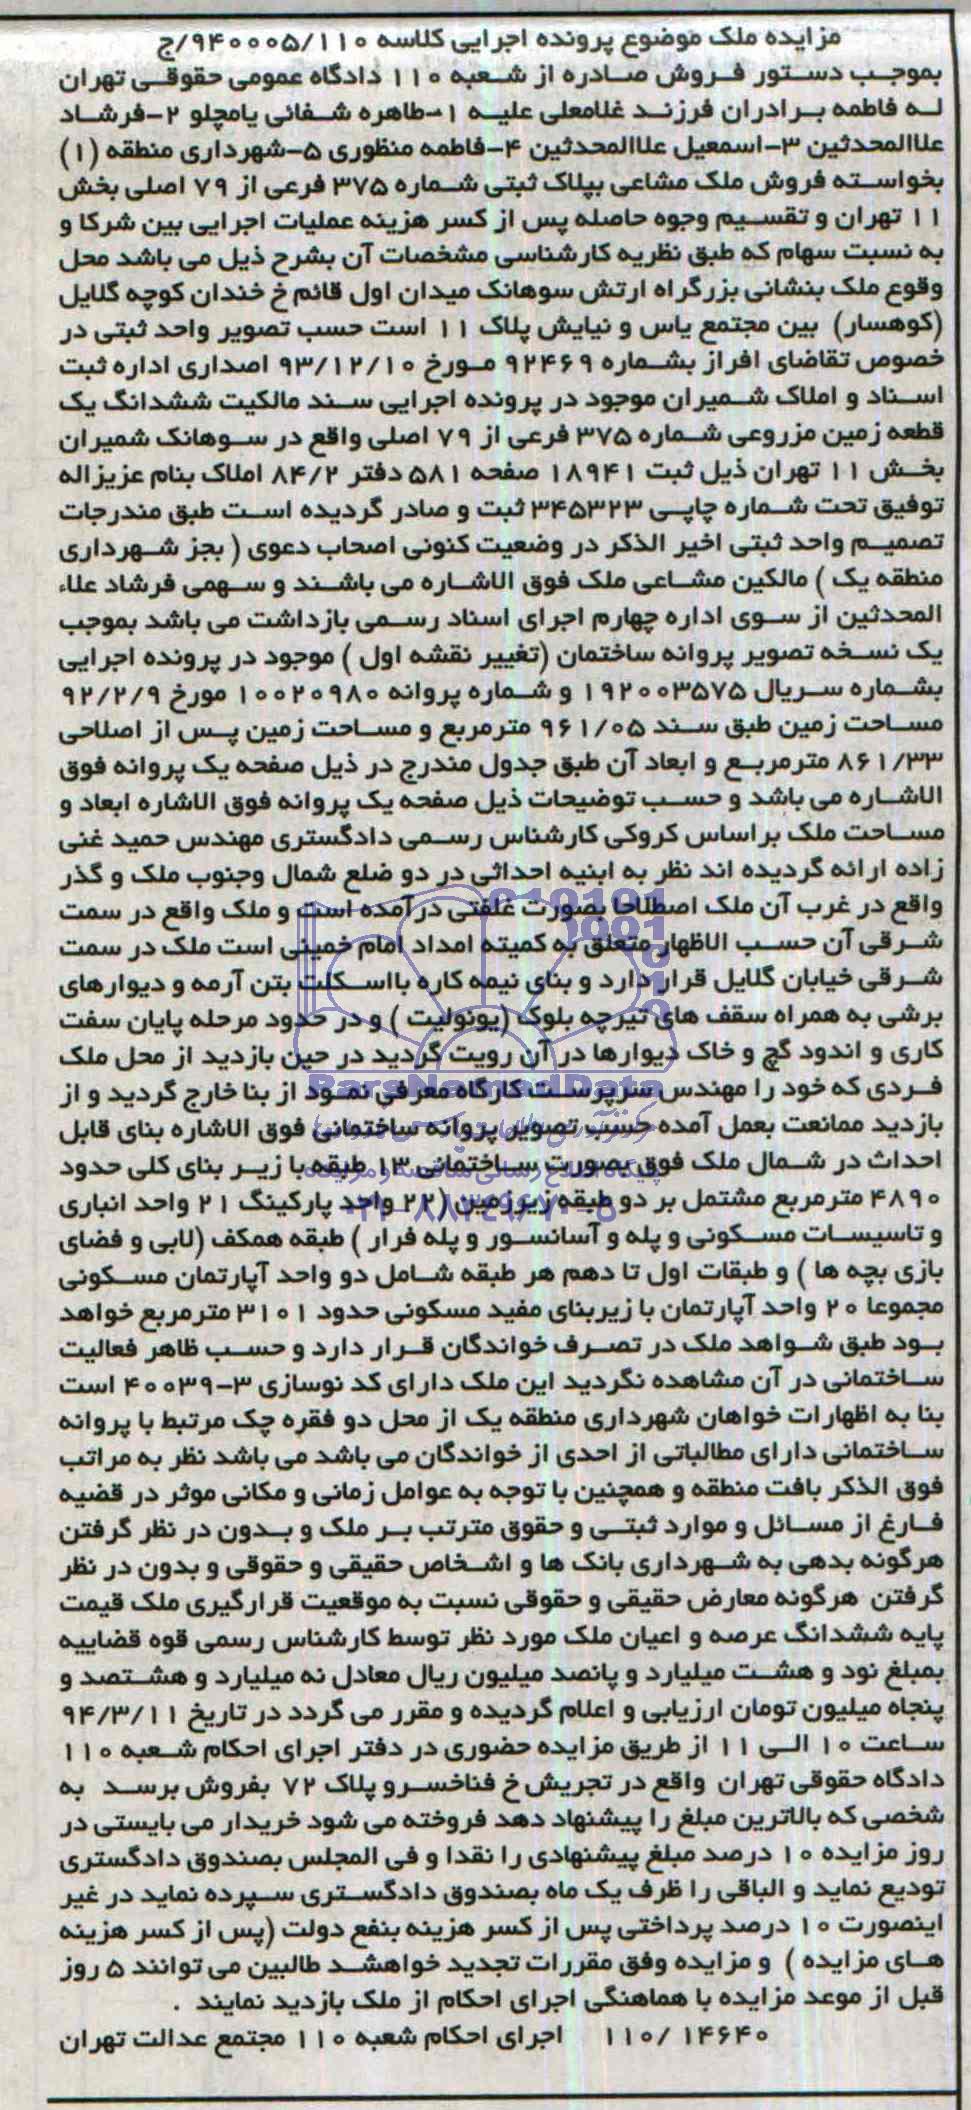 مزایده ملک موضوع پرونده اجرایی کلاسه ۹۴۰۰۰۵/۱۱۰/ج
بموجب دستور فروش صادره از شعبه ۱۱۰ دادگاه عمومی حقوقی تهران
له فاطمه برادران فرزند غلامعلی علیه ۱-طاهره شفائی یامچلو ۲-فرشاد
علاالمحدثین ۳-اسمعیل علاالمحدثین ۴-فاطمه منظوری ۵-شهرداری منطقه (۱)
بخواسته فروش ملک مشاعی بپلاک ثبتی شماره ۳۷۵ فرعی از ۷۹ اصلی بخش
۱۱ تهران و تقسیم وجوه حاصله پس از کسر هزینه عملیات اجرایی بین شرکا و
به نسبت سهام که طبق نظریه کارشناسی مشخصات آن بشرح ذیل می باشد محل
وقوع ملک بنشانی بزرگراه ارتش سوهانک میدان اول قائم خ خندان کوچه گلایل
(کوهسار) بین مجتمع یاس و نیایش پلاک ۱۱ است حسب تصویر واحد ثبتی در
خصوص تقاضای افراز بشماره ۹۲۴۶۹ مورخ ۹۳/۱۲/۱۰ اصداری اداره ثبت
اسناد و املاک شمیران موجود در پرونده اجرایی سند مالکیت ششدانگ یک
قطعه زمین مزروعی شماره ۳۷۵ فرعی از ۷۹ اصلی واقع در سوهانک شمیران
بخش ۱۱ تهران ذیل ثبت ۱۸۹۴۱ صفحه ۵۸۱ دفتر ۸۴/۲ املاک بنام عزیزاله
توفیق تحت شماره چاپی ۳۴۵۳۲۳ ثبت و صادر گردیده است طبق مندرجات
تصمیم واحد ثبتی اخیر الذکر در وضعیت کنونی اصحاب دعوی ( بجز شهرداری
منطقه یک ) مالکین مشاعی ملک فوق الاشاره می باشند و سهمی فرشاد علاء
المحدثین از سوی اداره چهارم اجرای اسناد رسمی بازداشت می باشد بموجب
یک نسخه تصویر پروانه ساختمان (تغییر نقشه اول ) موجود در پرونده اجرایی
بشماره سریال ۱۹۲۰۰۳۵۷۵ و شماره پروانه ۱۰۰۲۰۹۸۰ مورخ ۹۲/۲/۹
مساحت زمین طبق سند ۹۶۱/۰۵ مترمربع و مساحت زمین پس از اصلاحی
۸۶۱/۳۳ مترمربع و ابعاد آن طبق جدول مندرج در ذیل صفحه یک پروانه فوق
الاشاره می باشد و حسب توضیحات ذیل صفحه یک پروانه فوق الاشاره ابعاد و
مساحت ملک براساس کروکی کارشناس رسمی دادگستری مهندس حمید غنی
زاده ارائه گردیده اند نظر به ابنیه احداثی در دو ضلع شمال وجنوب ملک و گذر
واقع در غرب آن ملک اصطلاحا بصورت غلفتی درآمده است و ملک واقع در سمت
شرقی آن حسب الاظهار متعلق به کمیته امداد امام خمینی است ملک در سمت
شرقی خیابان گلایل قرار دارد و بنای نیمه کاره بااسکلت بتن آرمه و دیوارهای
برشی به همراه سقف های تیرچه بلوک (یونولیت ) و در حدود مرحله پایان سفت
کاری و اندود گچ و خاک دیوارها در آن رویت گردید در حین بازدید از محل ملک
فردی که خود را مهندس سرپرست کارگاه معرفی نمود از بنا خارج گردید و از
بازدید ممانعت بعمل آمده حسب تصویر پروانه ساختمانی فوق الاشاره بنای قابل
احداث در شمال ملک فوق بصورت ساختمانی ۱۳ طبقه با زیر بنای کلی حدود
۴۸۹۰ مترمربع مشتمل بر دو طبقه زیرزمین (۲۲ واحد پارکینگ ۲۱ واحد انباری
و تاسیسات مسکونی و پله و آسانسور و پله فرار ) طبقه همکف (لابی و فضای
بازی بچه ها ) و طبقات اول تا دهم هر طبقه شامل دو واحد آپارتمان مسکونی
مجموعا ۲۰ واحد آپارتمان با زیربنای مفید مسکونی حدود ۳۱۰۱ مترمربع خواهد
بود طبق شواهد ملک در تصرف خواندگان قرار دارد و حسب ظاهر فعالیت
ساختمانی در آن مشاهده نگردید این ملک دارای کد نوسازی ۳-۴۰۰۳۹ است
بنا به اظهارات خواهان شهرداری منطقه یک از محل دو فقره چک مرتبط با پروانه
ساختمانی دارای مطالباتی از احدی از خواندگان می باشد می باشد نظر به مراتب
فوق الذکر بافت منطقه و همچنین با توجه به عوامل زمانی و مکانی موثر در قضیه
فارغ از مسائل و موارد ثبتی و حقوق مترتب بر ملک و بدون در نظر گرفتن
هرگونه بدهی به شهرداری بانک ها و اشخاص حقیقی و حقوقی و بدون در نظر
گرفتن هرگونه معارض حقیقی و حقوقی نسبت به موقعیت قرارگیری ملک قیمت
پایه ششدانگ عرصه و اعیان ملک مورد نظر توسط کارشناس رسمی قوه قضاییه
بمبلغ نود و هشت میلیارد و پانصد میلیون ریال معادل نه میلیارد و هشتصد و
پنجاه میلیون تومان ارزیابی و اعلام گردیده و مقرر می گردد در تاریخ ۹۴/۳/۱۱
ساعت ۱۰ الی ۱۱ از طریق مزایده حضوری در دفتر اجرای احکام شعبه ۱۱۰
دادگاه حقوقی تهران واقع در تجریش خ فناخسرو پلاک ۷۲ بفروش برسد به
شخصی که بالاترین مبلغ را پیشنهاد دهد فروخته می شود خریدار می بایستی در
روز مزایده ۱۰ درصد مبلغ پیشنهادی را نقدا و فی المجلس بصندوق دادگستری
تودیع نماید و الباقی را ظرف یک ماه بصندوق دادگستری سپرده نماید در غیر
اینصورت ۱۰ درصد پرداختی پس از کسر هزینه بنفع دولت (پس از کسر هزینه
های مزایده ) و مزایده وفق مقررات تجدید خواهشد طالبین می توانند ۵ روز
قبل از موعد مزایده با هماهنگی اجرای احکام از ملک بازدید نمایند .
۱۱۰/۱۴۶۴۰ اجرای احکام شعبه ۱۱۰ مجتمع عدالت تهران
ParsNamadData